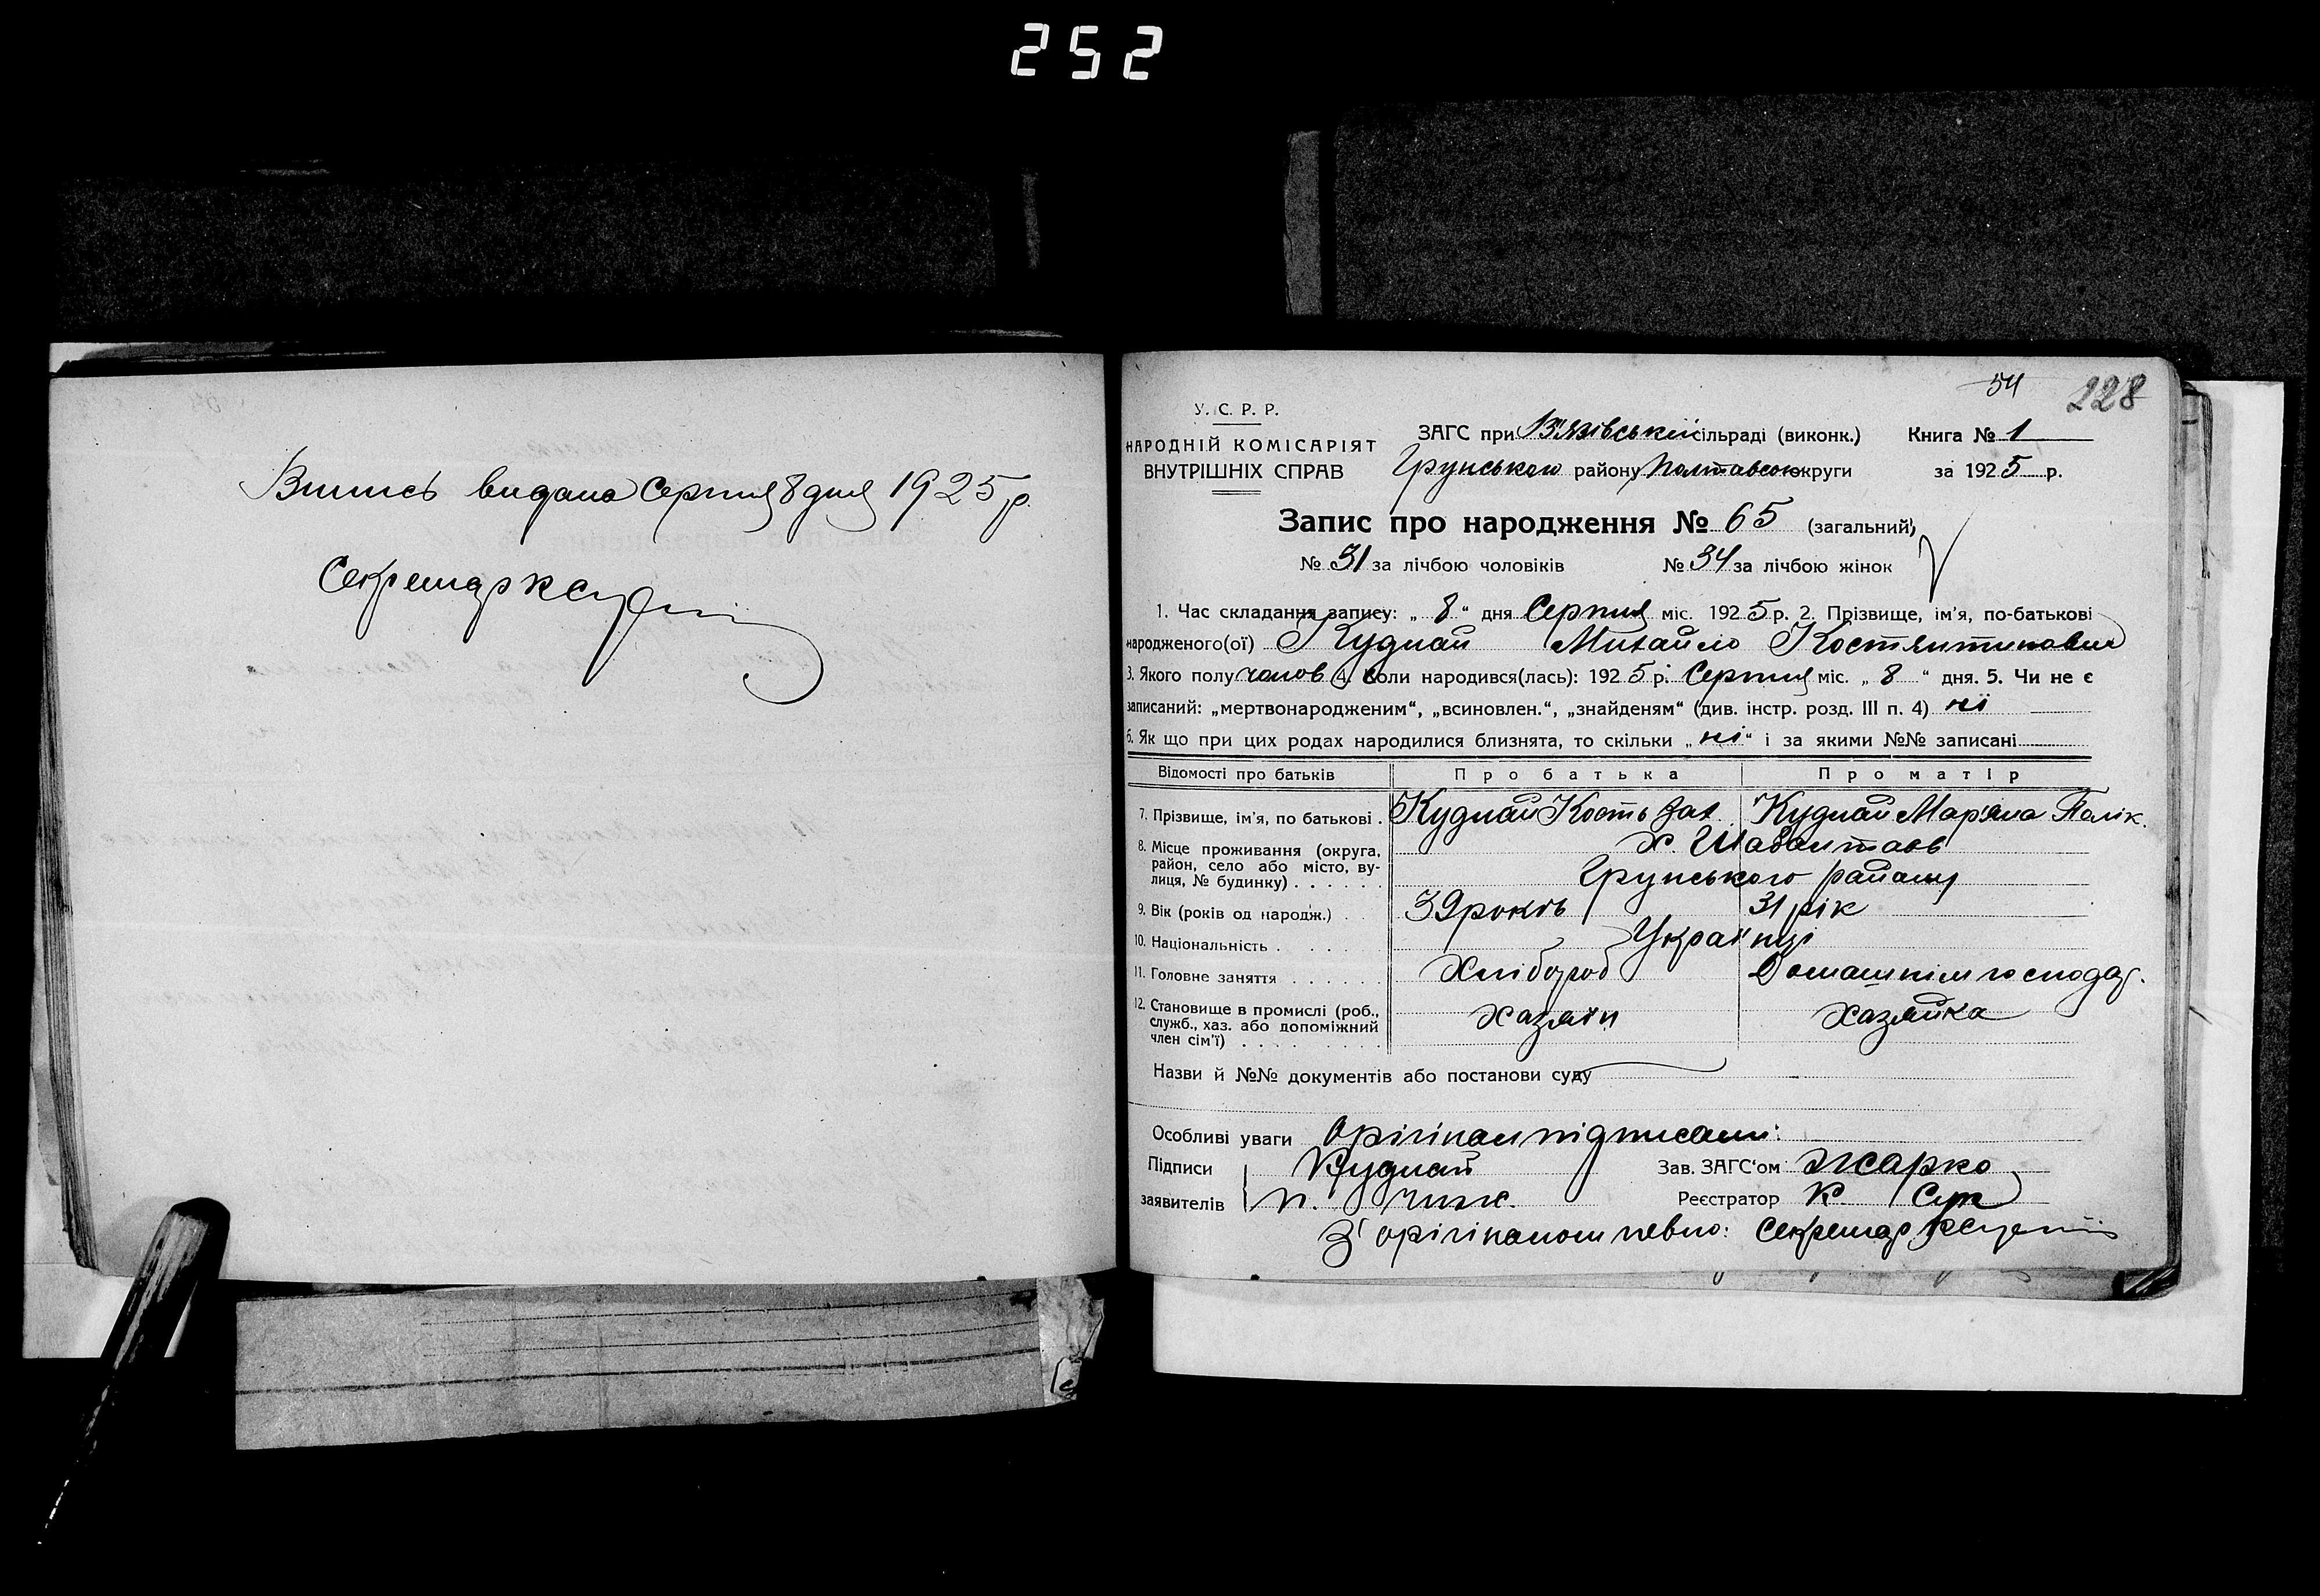 252
Випись видана Серпня 8 дня 1925 р.
Секретар
54 228
У. С. Р. Р.
НАРОДНІЙ КОМІСАРІЯТ
ВНУТРІШНІХ СПРАВ
ЗАГС при В'язівській сільраді (виконк.) Книга № 1
Грунського району Полтавсок округи за 1925 р.
Запис про народження № 65 (загальний)
№ 31 за лічбою чоловіків № 34 за лічбою жінок
1. Час складання запису: „ 8 “ дня Серпня міс. 1925 р. 2. Прізвище, ім'я, по-батькові
народженого(ої) Кудлай Михайло Костянтинович
3. Якого полу чолов 4. Коли народився(лась): 1925 р. Серпня міс. „ 8 “ дня. 5. Чи не є
записаний: „мертвонародженим“, „всиновлен.“, „знайденям“ (див. інстр. розд. III п. 4) ні
6. Як що при цих родах народилися близнята, то скільки „ ні “ і за якими №№ записані
Відомості про батьків Про батька Про матір
7. Прізвище, ім'я, по батькові . Кудлай Кость Зах. Кудлай Мар'яна Полік.
8. Місце проживання (округа, район, село або місто, вулиця, № будинку) . . . . . . х. Шабалтаєв
Грунського району
9. Вік (років од народж.) . 39 років 31 рік
10. Національність . . . . Українці
11. Головне заняття . . . . . . Хлібороб Домашнім господар.
12. Становище в промислі (роб., служб., хаз. або допоміжний член сім'ї) . . . . . . . . . Хазяїн Хазяйка
Назви й №№ документів або постанови суду
Особливі уваги Орігінал підписали:
Підписи Кудлай Зав. ЗАГС'ом Жарко
заявителів П. Чиж. Реєстратор К. Сук
З орігіналом певно: Секретар